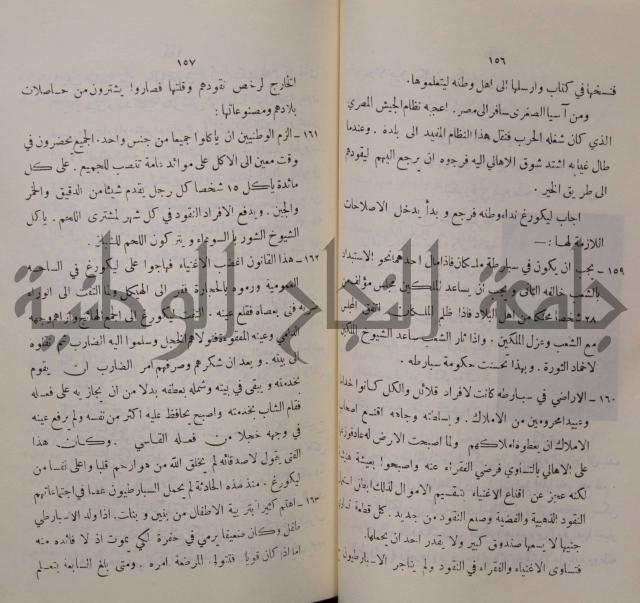 ١٥٦
فنسخها في كتاب وارسلها الى اهل وطنه ليتعلموها.
ومن آسيا الصغرى سافر الى مصر. اعجبه نظام الجيش المصري
الذي كان شغله الحرب فنقل هذا النظام المفيد الى بلدة. وعندما
طال غيابه اشتد شوق الاهالي اليه فرجوه ان يرجع اليهم ليقودهم
الى طريق الخير.
اجاب ليكورغ نداء وطنه فرجع وبدأ يدخل الاصلاحات
اللازمة لها:—
١٥٩– يجب ان يكون في سبارطة ملكان فاذا مال احدهما نحو الاستبداد
بالشعب خالفه الثاني ويجب أن يساعد الملكين مجلس مؤلف من
٢٨ شخصا عاقلا من اهل البلاد فاذا ظلم الملكان اتفق المجلس
مع الشعب وعزل الملكين. واذا ثار الشعب ساعد الشيوخ الملكين
لاخماد الثورة. وبهذا تحسنت حكومة سبارطه.
١٦٠– الاراضي في سبارطة كانت لافراد قلائل والكل كانوا
وعبيدا محرومين من الاملاك. وبسلطانه وجاهه اقنع اصحاب
الاملاك ان يعطوه املاكهم ولما اصبحت الارض له
على الاهالي بالتساوي فرضي الفقراء عنه واصبحوا بعيشة
لكنه عجز عن اقناع الاغنياء بتقسيم الاموال لذلك ابطل
النقود الذهبية والفضية وصنع النقود من حديد. كل قطعة
جنيها لا يسعها صندوق كبير ولا يقدر احد ان يحملها.
فتساوى الاغنياء والفقراء في النقود ولم يتاجر الاسبارطيون
١٥٧
الخارج لرخص نقودهم وقلتها فصاروا يشترون من حاصلات
بلادهم ومصنوعاتها:
١٦١– الزم الوطنيين ان ياكلوا جميعا من جنس واحد. الجميع يحضرون في
وقت معين الى الاكل على موائد عامة تنصب للجميع. على كل
مائدة ياكل ١٥ شخصا كل رجل يقدم شيئا من الدقيق والخمر
والجبن. ويدفع الافراد النقود في كل شهر لمشترى اللحم. ياكل
الشيوخ الشوربا السوداء ويتركون اللحم للشبان.
١٦٢– هذا القانون اغضب الاغنياء فهاجوا على ليكورغ في الساحه
العمومية ورموه بالحجارة ففر الى الهيكل ولما التفت الى الوراء
ضربه فتى بعصاه فقلع عينه. التفت ليكورغ الى الجمع الهائج واراهم وجهه
الدامي وعينه المفقودة فتولاهم الخجل وسلموا اليه الضارب
الى بيته. وبعد ان شكرهم وصرفهم امر الضارب ان يقوم
بخدمته ويبقى في بيته وشمله بعطفه بدلا من ان يجازيه على فعله
فقام الشاب بخدمته واصبح يحافظ عليه اكثر من نفسه ولم يرفع عينه
في وجهه خجلا من فعله القاسي. وكان هذا
الفتى يقول لاصدقائه لم يخلق الله من هو ارحم قلبا واعلى نفسا من
ليكورغ. منذ هذه الحادثة لم يحمل السبارطيون عصا في اجتماعاتهم
١٦٣– اهتم كثيرا بتربية الاطفال من بنين وبنات. اذا ولد الاسبارطي
طفل وكان ضعيفا يرمى في حفرة لكي يموت اذ لا فائده منه
اما اذا كان قويا. فتتولى المرضعة امره. ومتى بلغ السابعة يتعلم
جامعة النجاح الوطنية